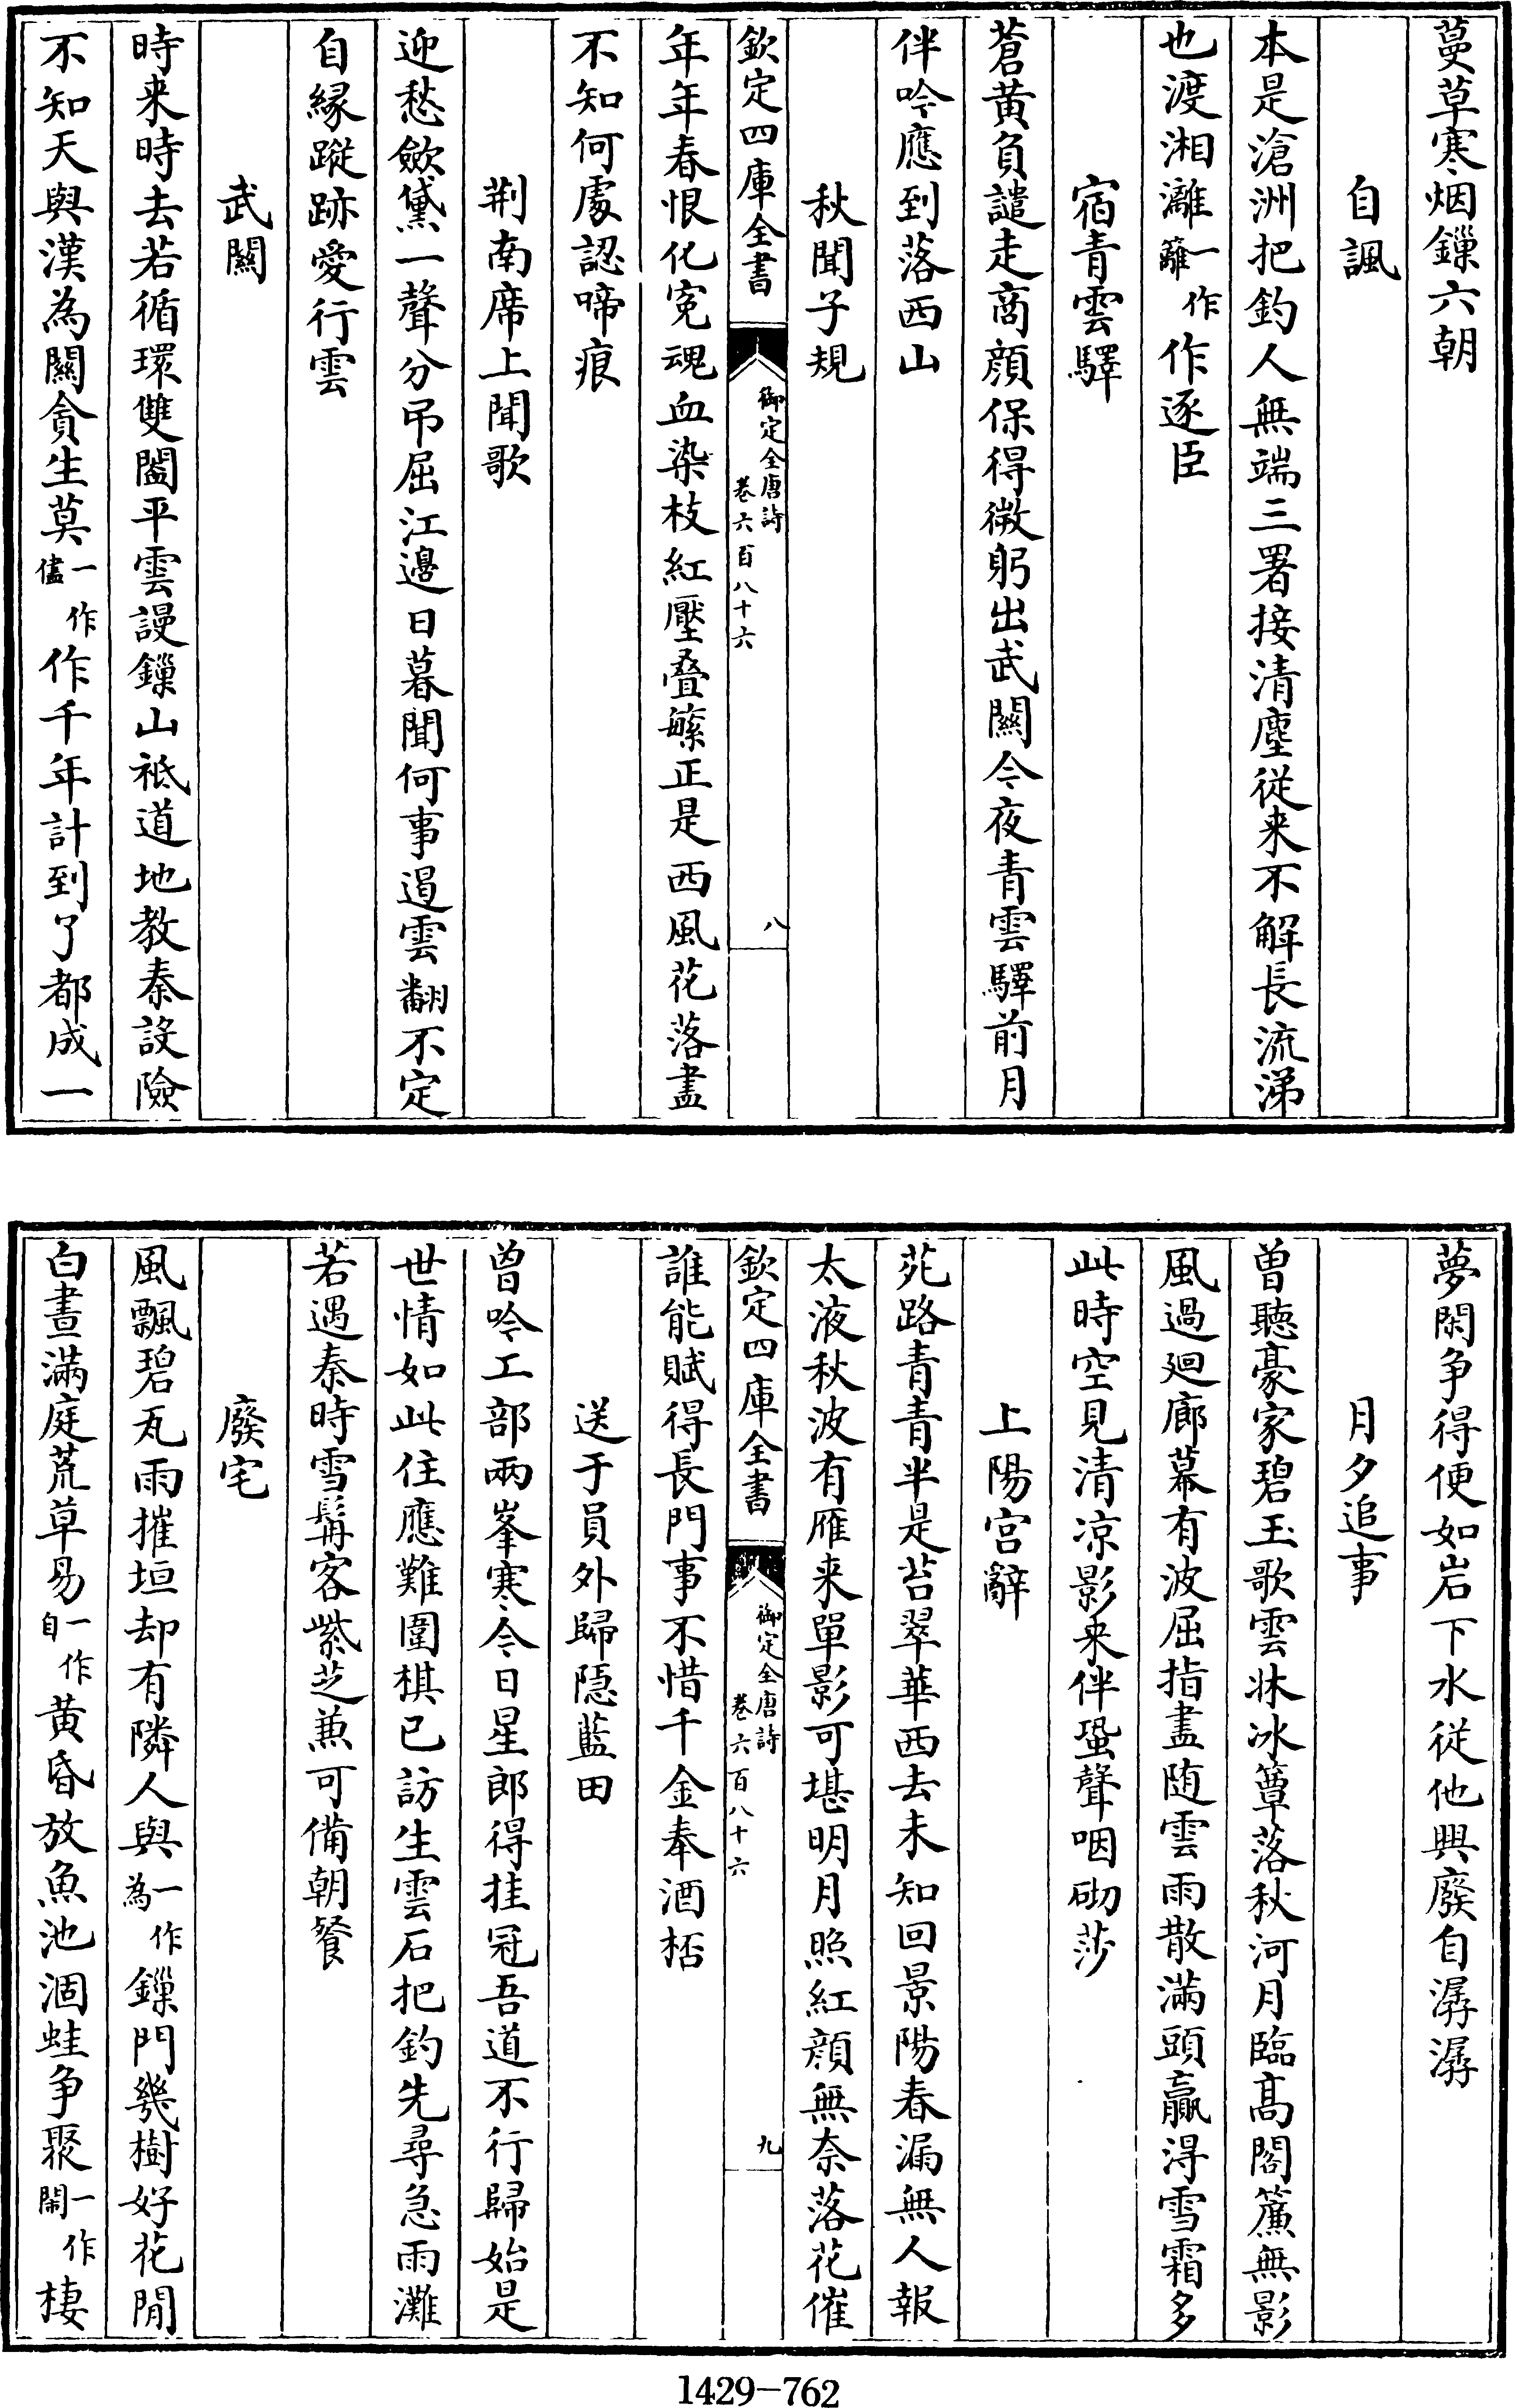 蔓草寒烟鏁六朝
自諷
本是滄洲把釣人無端三署接清塵従来不解長流涕
也渡湘灕一作籬作逐臣
宿青雲驛
蒼黄負譴走商顔保得微躬出武關今夜青雲驛前月
伴吟應到落西山
秋聞子規
欽定四庫全書
御定全唐詩
卷六百八十六
八
年年春恨化寃魂血染枝紅壓叠蘩正是西風花落盡
不知何處認啼痕
荆南席上聞歌
迎愁斂黛一聲分吊屈江邊日暮聞何事遏雲翻不定
自縁蹤跡愛行雲
武關
時来時去若循環雙闔平雲謾鏁山祗道地教秦設險
不知天與漢為關貪生莫一作儘作千年計到了都成一
夢閑争得便如岩下水從他興廢自潺潺
月夕追事
曾聽豪家碧玉歌雲牀冰簟落秋河月臨髙閣簾無影
風過廻廊幕有波屈指盡随雲雨散滿頭贏淂雪霜多
此時空見清凉影来伴蛩聲咽砌莎
上陽宫辭
苑路青青半是苔翠華西去未知回景陽春漏無人報
太液秋波有雁来單影可堪明月照紅顔無奈落花催
欽定四庫全書
御定全唐詩
卷六百八十六
九
誰能賦得長門事不惜千金奉酒桮
送于員外歸隠藍田
曾吟工部兩峯寒今日星郎得挂冠吾道不行歸始是
世情如此住應難圍棋已訪生雲石把釣先尋急雨灘
若遇秦時雪髯客紫芝兼可備朝餐
廢宅
風飄碧瓦雨摧垣却有隣人與一作為鏁門幾樹好花閒
白晝滿庭荒草易一作自黄昏放魚池涸蛙争聚一作閙棲
1429-762